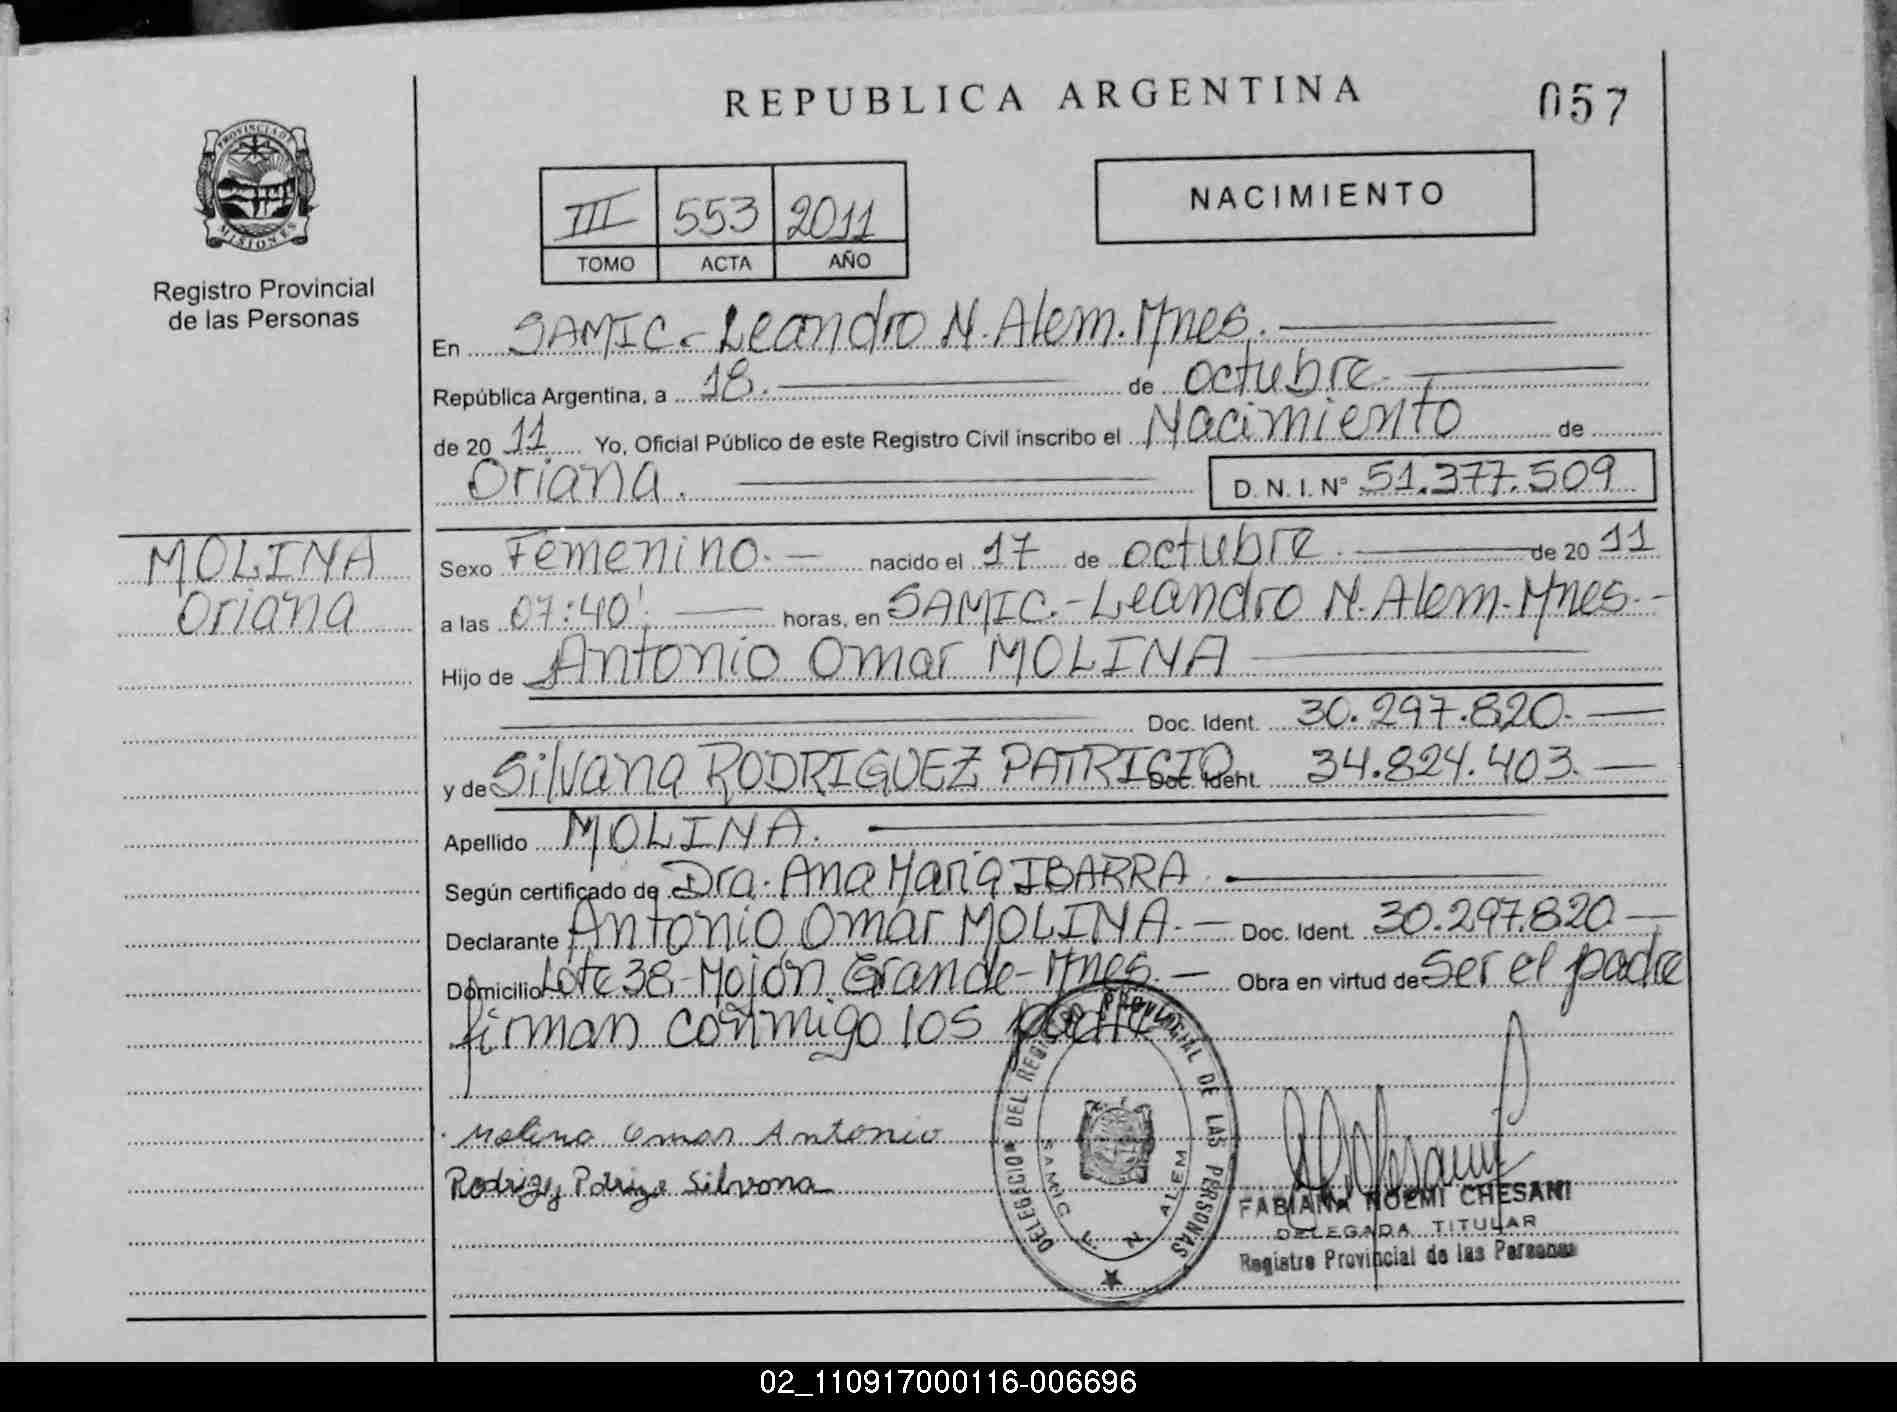 REPUBLICA ARGENTINA
057
PROVINCIA DE MISIONES
Registro Provincial
de las Personas
III 553 2011
TOMO ACTA AÑO
NACIMIENTO
En SAMIC.- Leandro N. Alem. Mnes.
República Argentina, a 18. de octubre.
de 20 11 Yo, Oficial Público de este Registro Civil inscribo el Nacimiento de
Oriana. D. N. I. N° 51.377.509
MOLINA
Oriana
Sexo Femenino. nacido el 17 de octubre. de 20 11
a las 07:40'. horas, en SAMIC.- Leandro N. Alem. Mnes.-
Hijo de Antonio Omar MOLINA
Doc. Ident. 30.297.820.
y de Silvana RODRIGUEZ PATRICIO Doc. Ident. 34.824.403.
Apellido MOLINA.
Según certificado de Dra. Ana María IBARRA.
Declarante Antonio Omar MOLINA.- Doc. Ident. 30.297.820
Domicilio Lote 38-Mojón Grande-Mnes. Obra en virtud de Ser el padre
firman conmigo los padre
Molina Omar Antonio
Silvana
DELEGACION DEL REGISTRO PROVINCIAL DE LAS PERSONAS
SAMIC L. N. ALEM
FABIANA NOEMI CHESANI
DELEGADA TITULAR
Registro Provincial de las Personas
02_110917000116-006696